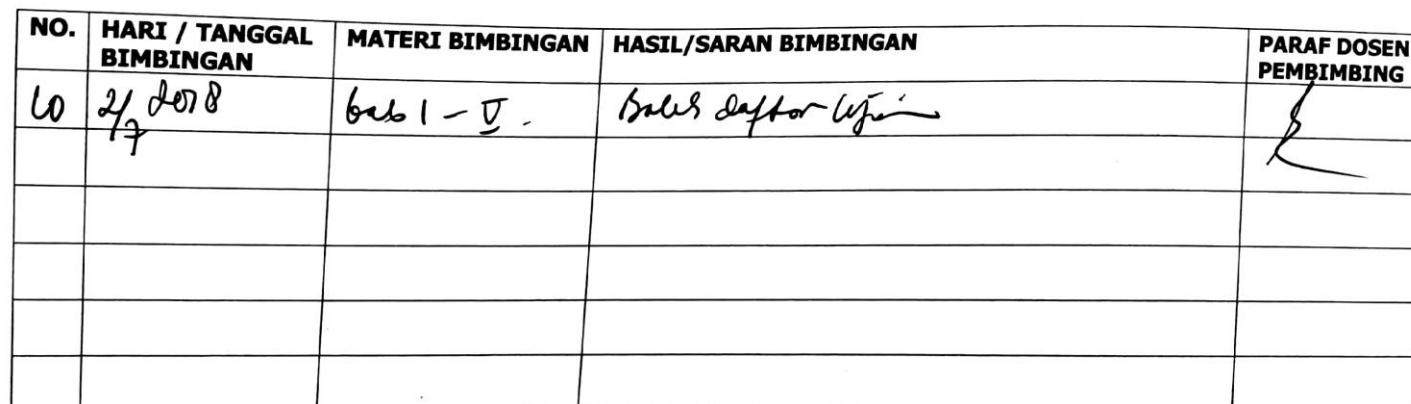 NO.
HARI / TANGGAL
BIMBINGAN
MATERI BIMBINGAN
HASIL/SARAN BIMBINGAN
PARAF DOSEN
PEMBIMBING
10
2/7 2018
bab I - V.
Boleh daftar Ujian